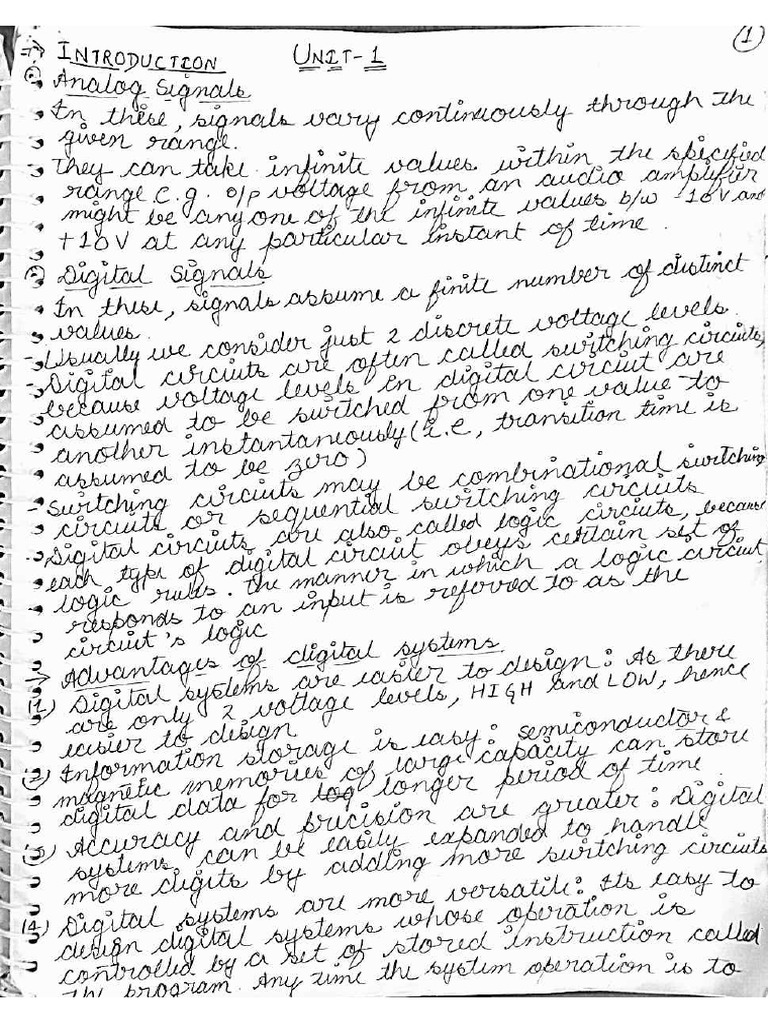 (1)
⇒ INTRODUCTION UNIT-1
Analog Signals
In these, signals vary continuously through the
given range.
They can take infinite values within the specified
range e.g. o/p voltage from an audio amplifier
might be any one of the infinite values b/w -10V and
+10V at any particular instant of time.
Digital Signals
In these, signals assume a finite number of distinct
values.
- Usually we consider just 2 discrete voltage levels.
- Digital circuits are often called switching circuits,
because voltage levels in digital circuit are
assumed to be switched from one value to
another instantaneously (i.e, transition time is
assumed to be zero)
- Switching circuits may be combinational switching
circuits or sequential switching circuits
- Digital circuits are also called logic circuits, because
each type of digital circuit obeys certain set of
logic rules. The manner in which a logic circuit
responds to an input is referred to as the
circuit's logic
→ Advantages of digital systems
(1) Digital systems are easier to design: As there
are only 2 voltage levels, HIGH and LOW, hence
easier to design
(2) Information storage is easy: semiconductor &
magnetic memories of large capacity can store
digital data for longer period of time
(3) Accuracy and precision are greater: Digital
systems can be easily expanded to handle
more digits by adding more switching circuits
(4) Digital systems are more versatile: Its easy to
design digital systems whose operation is
controlled by a set of stored instruction called
the program. Any time the system operation is to